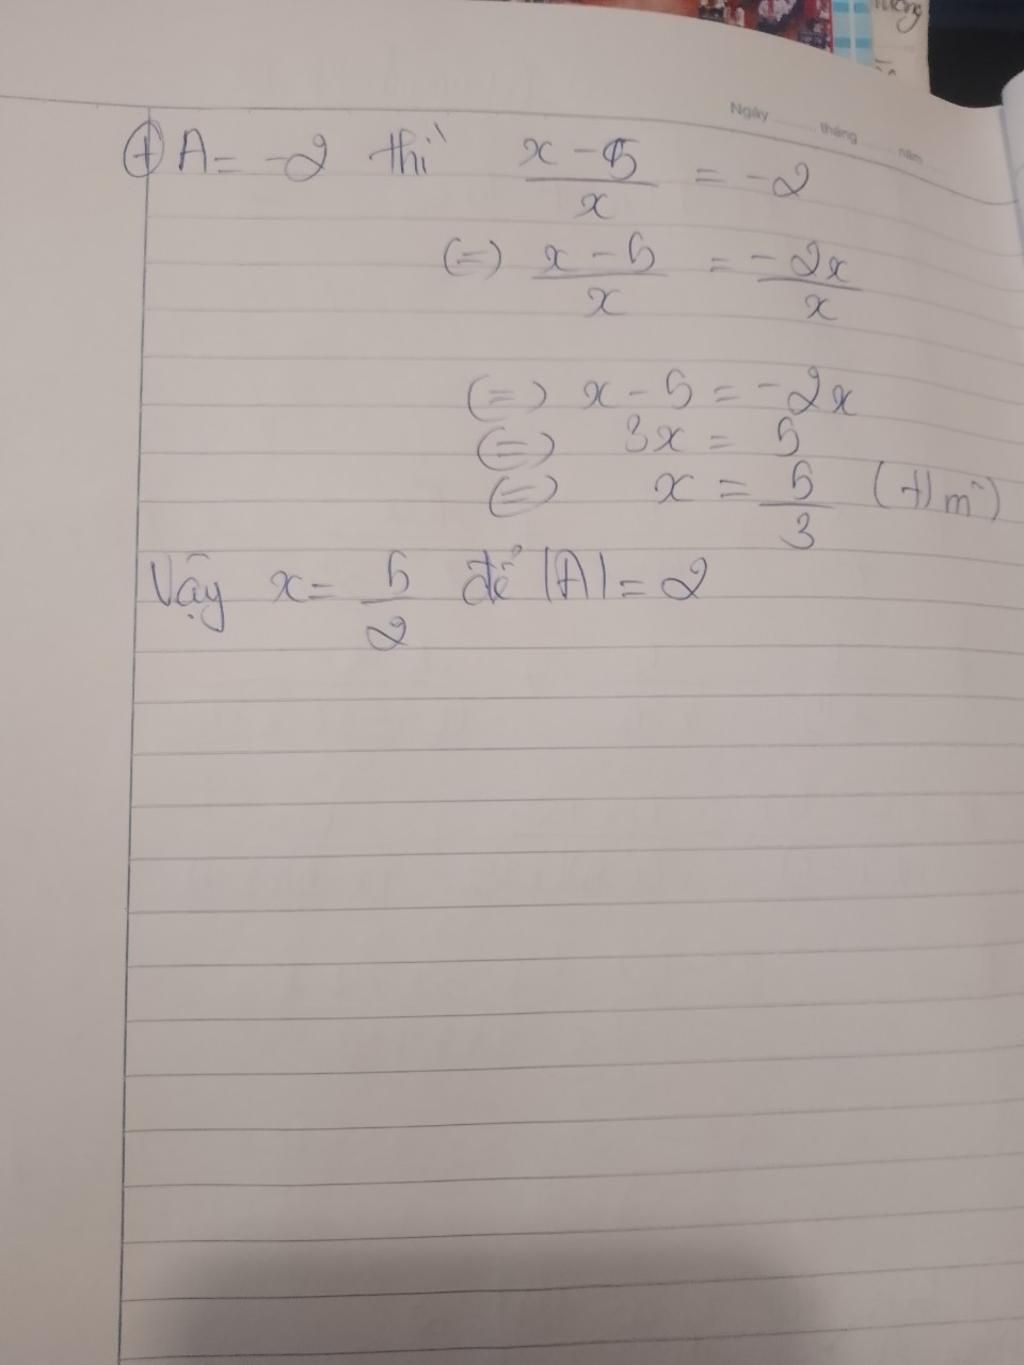 Ngày ........ tháng ........ năm ........
⊕ A = -2 thì x - 5 / x = -2
(=) x - 5 / x = -2x / x
(=) x - 5 = -2x
(=) 3x = 5
(=) x = 5 / 3 (t/m)
Vậy x = 5 / 2 để |A| = 2